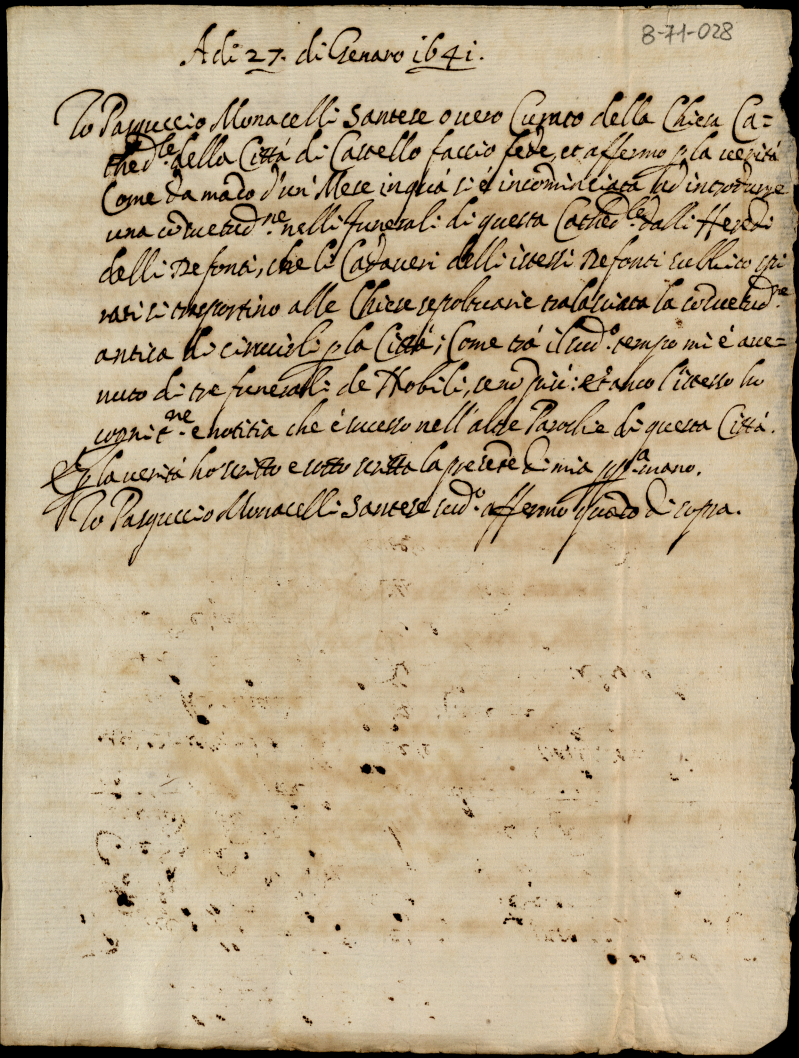 B-71-028
Adi 27. di Genaro 1641.
Io Pasquccio Monacelli Santese overo Curato della Chiesa Ca=
thed.le della Città di Castello faccio fede, et affermo p la verità
Come da mado d'un' Mese in quà si è incominciata ad introdurre
una cosuetud.ne nelli funerali di questa Cathed.le dalli Heredi
delli Defonti, che li Cadaveri delli istessi Defonti subbito spi
rati si trasportino alle Chiese sepolturarie tralasciata la cosuetud.ne
antica di circuirli p la Città; Come trà il sud.o tempo mi è ave=
nuto di tre funerali de Nobili, se nò più: et anco l'istesso ho
cognit.ne e notitia che è sucesso nell'altre Parochie di questa Città.
Et p la verità ho scritto e sotto scritta la presete di mia pp.a mano.
Io Pasquccio Monacelli Santese sud.o affermo quato di sopra.